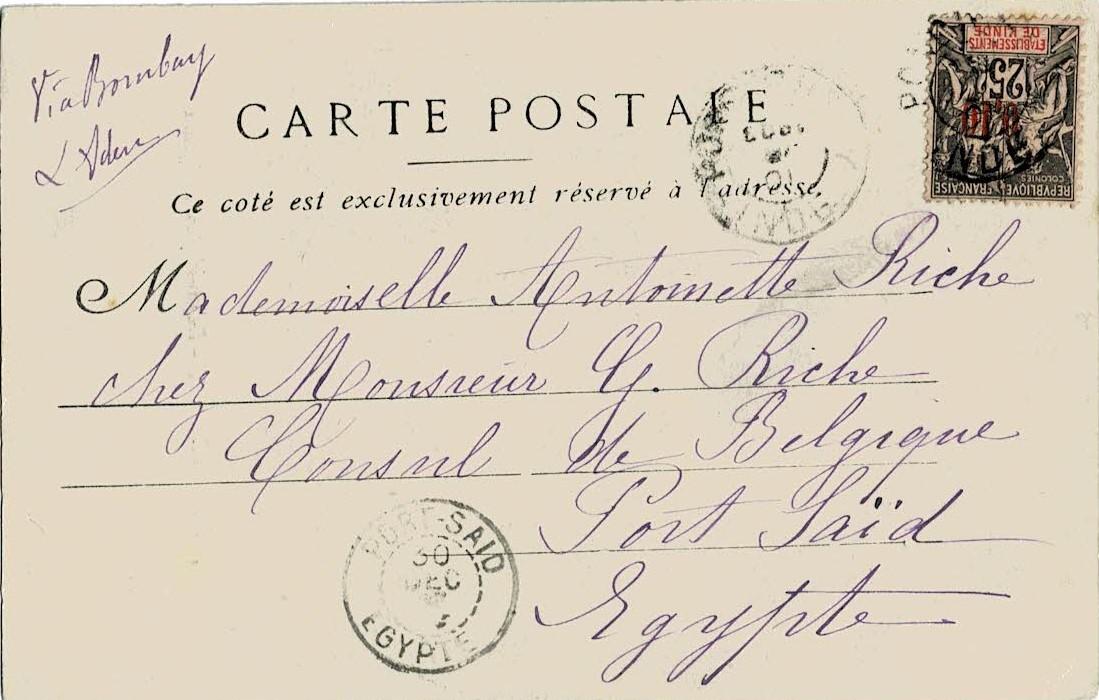 Via Bombay
& Aden
CARTE POSTALE
Ce coté est exclusivement réservé à l'adresse.
Mademoiselle Antoinette Riche
chez Monsieur G. Riche
Consul de Belgique
Port Saïd
Egypte
PORT-SAID
30
DEC
EGYPTE
ETABLISSEMENTS
DE L'INDE
25
0,10
REPUBLIQUE FRANÇAISE
COLONIES
INDE